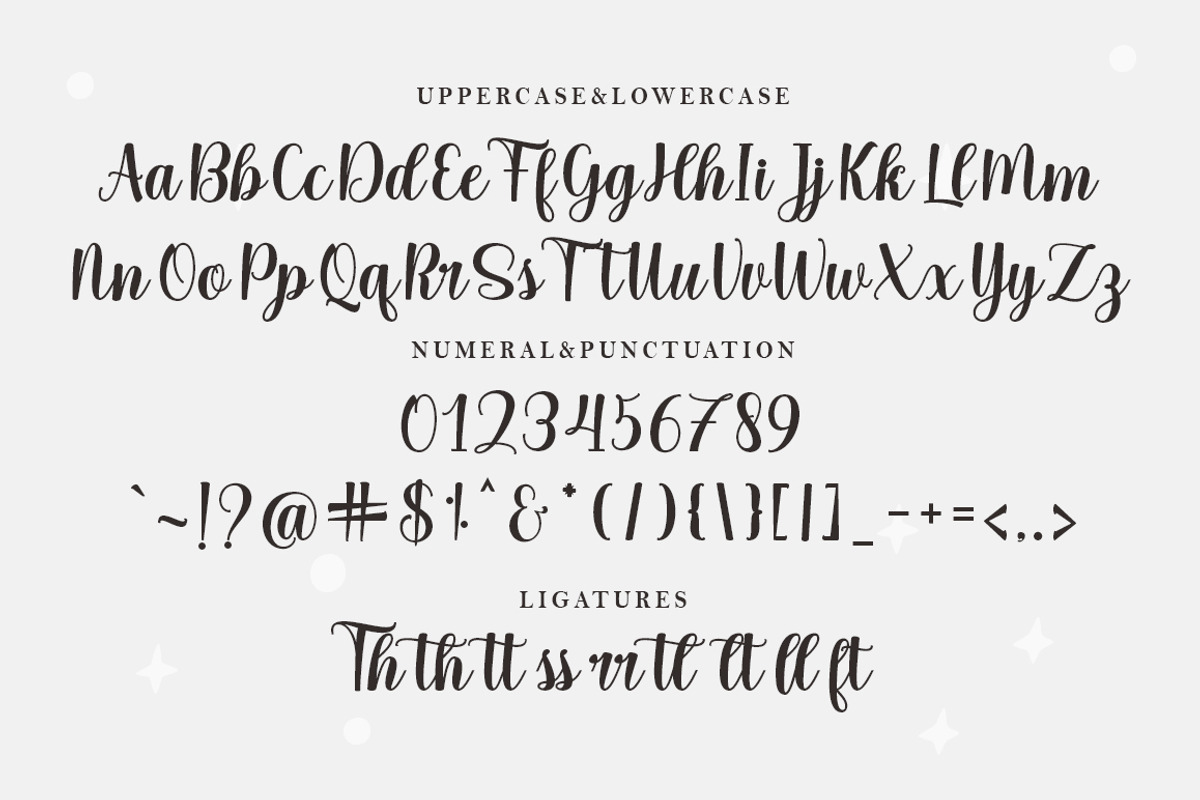 UPPERCASE&LOWERCASE
Aa Bb Cc Dd Ee Ff Gg Hh Ii Jj Kk Ll Mm
Nn Oo Pp Qq Rr Ss Tt Uu Vv Ww Xx Yy Zz
NUMERAL&PUNCTUATION
0123456789
`~!?@#$%^&*(/){\}[|]_-+=<,.>
LIGATURES
Th th tt ss rr tl lt ll ft